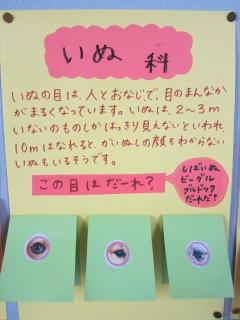 いぬ 科
いぬの目は、人とおなじで、目のまんなか
がまるくなっています。いぬは、2～3m
いないのものしかはっきり見えないといわれ、
10mはなれると、かいぬしの顔もわからない
いぬもいるそうです。
この目はだーれ?
しばいぬ
ビーグル
ブルドック
だれだ?